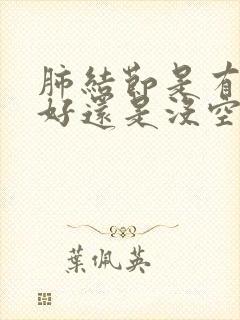 肺結節是有
好還是沒空
葉佩英